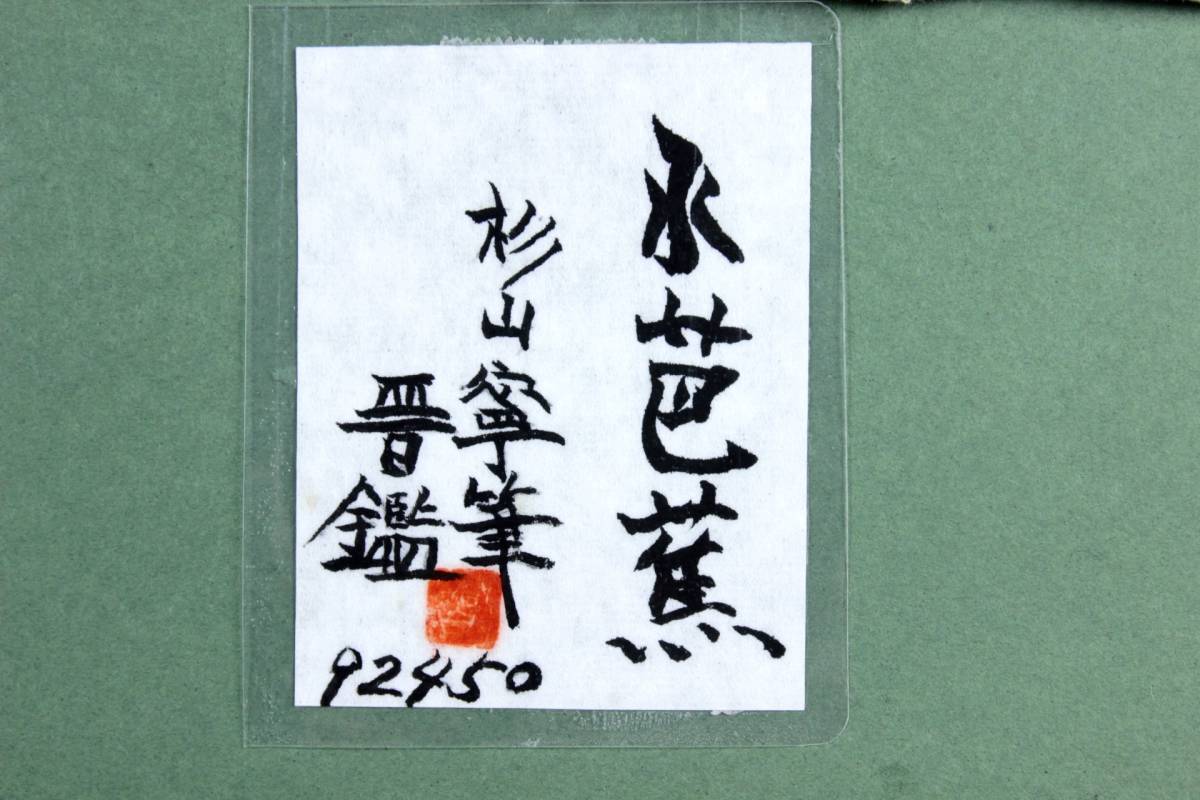 水芭蕉
杉山寧筆
晋鑑
92450